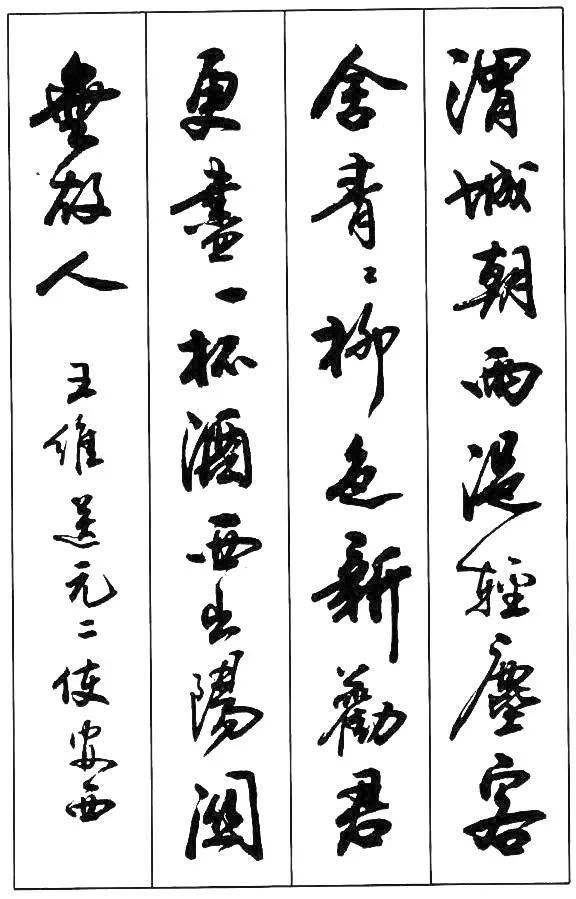 渭城朝雨浥輕塵客
舍青〻柳色新勸君
更盡一杯酒西出陽關
無故人
王維送元二使安西